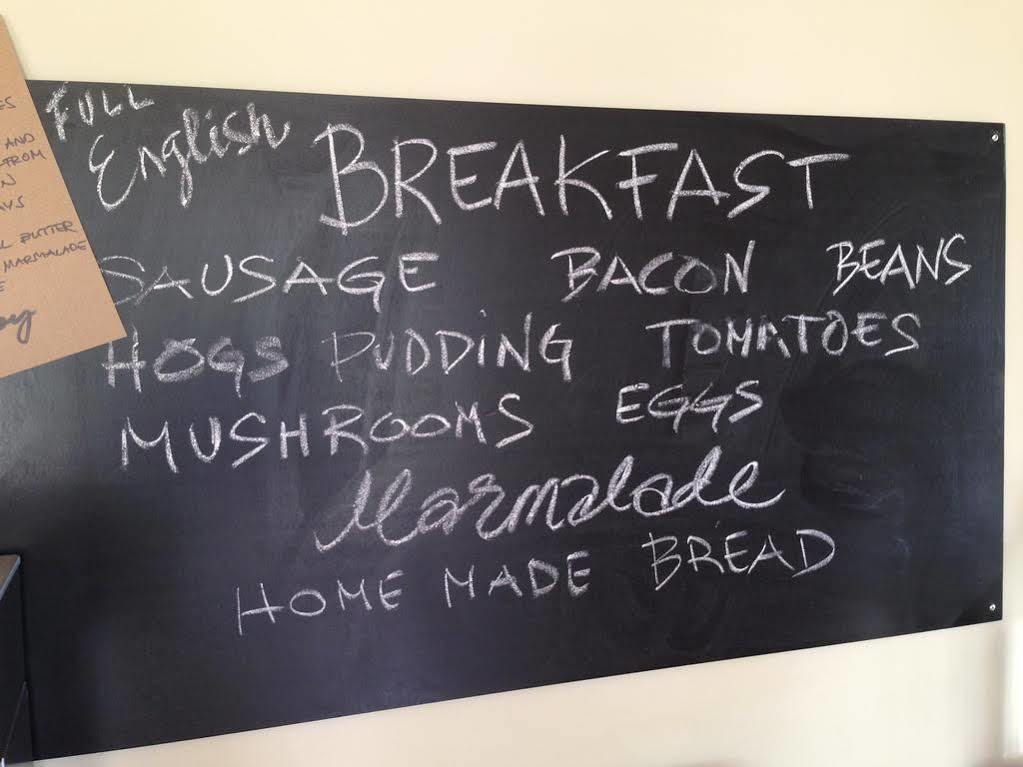 AND
FROM
BUTTER
MARMALADE
FULL
English BREAKFAST
SAUSAGE BACON BEANS
HOGS PUDDING TOMATOES
MUSHROOMS EGGS
Marmalade
HOME MADE BREAD